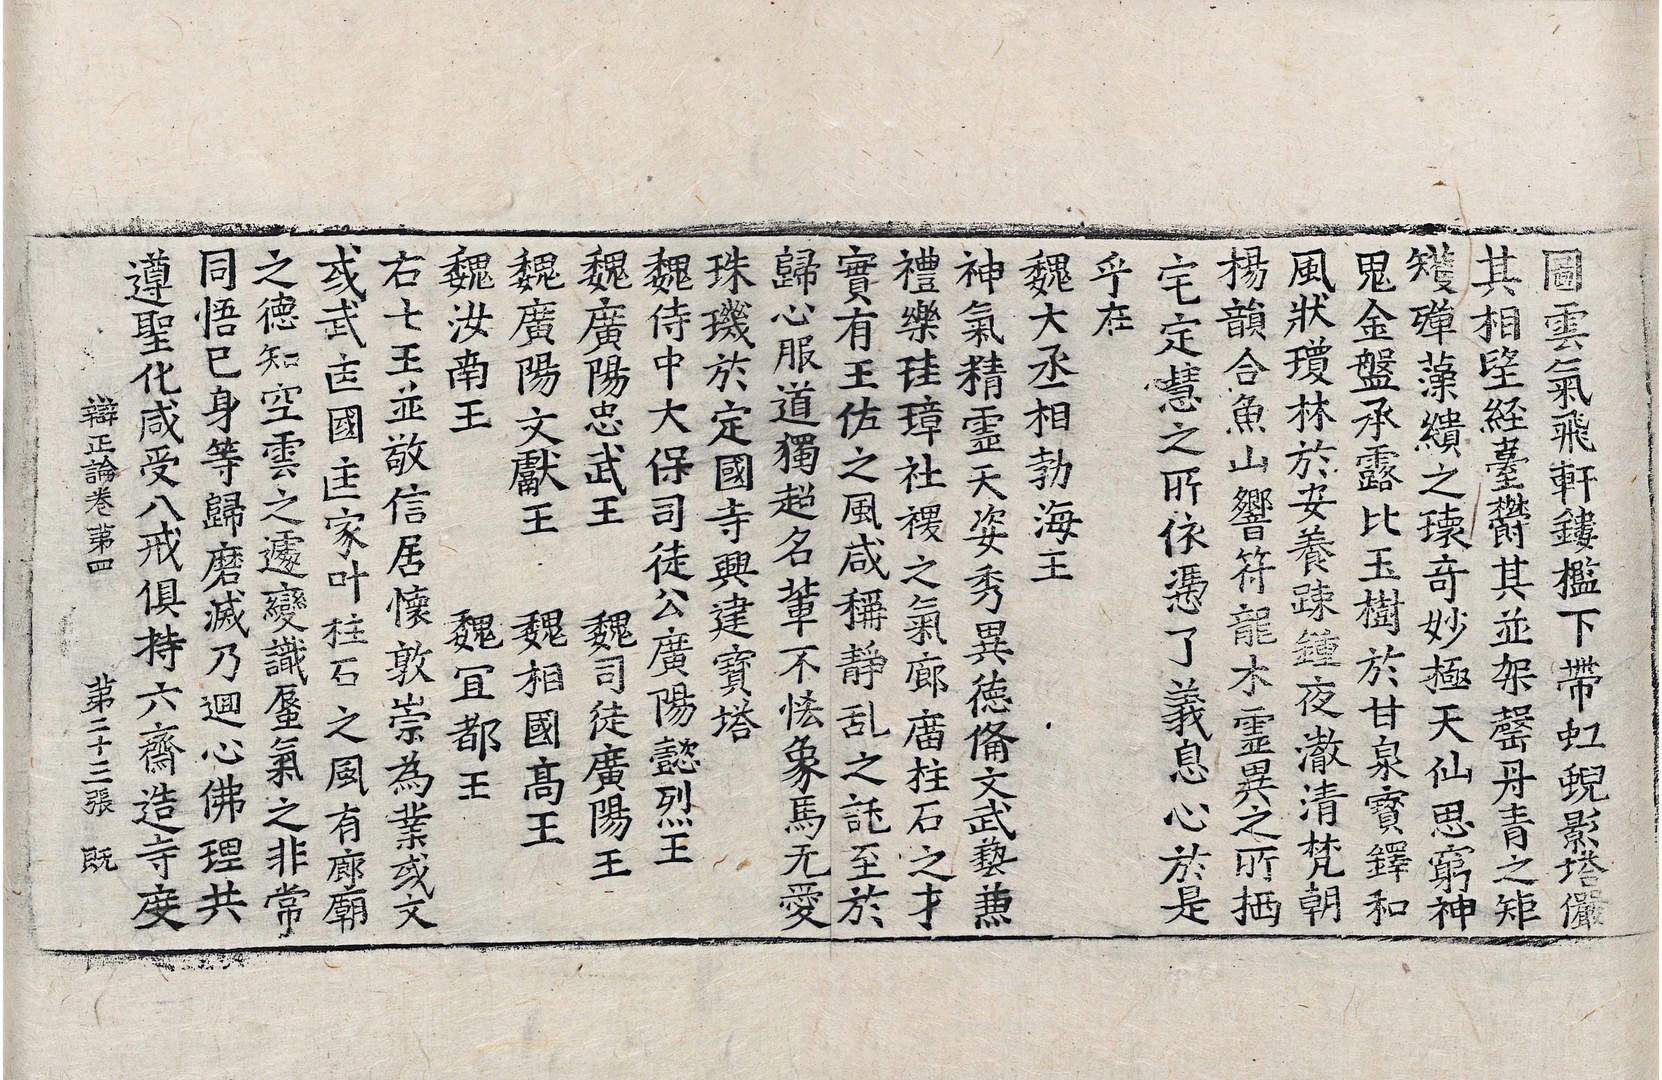 圖雲氣飛軒鏤檻下帶虹蜺影塔儼
其相望経臺欝其並架罄丹青之矩
矱殫藻繢之瓌奇妙極天仙思窮神
鬼金盤承露比玉樹於甘泉寳鐸和
風狀瓊林於安養踈鍾夜澈清梵朝
揚韻合魚山響符龍水霊異之所栖
宅定慧之所依憑了義息心於是
乎在
魏大丞相勃海王
神氣精霊天姿秀異徳俻文武藝兼
禮樂珪璋社稷之氣廊庿柱石之才
實有王佐之風咸稱靜乱之託至於
歸心服道獨超名軰不恡象馬无愛
珠璣於定國寺興建寳塔
魏侍中大保司徒公廣陽懿烈王
魏廣陽忠武王　魏司徒廣陽王
魏廣陽文獻王　魏相國髙王
魏汝南王　魏宜都王
右七王並敬信居懷敦崇為業或文
或武匡國匡家叶柱石之風有廊廟
之德知空雲之遽變識蜃氣之非常
同悟已身等歸磨滅乃迴心佛理共
遵聖化咸受八戒俱持六齋造寺度
辯正論卷苐四　苐二十三張　既